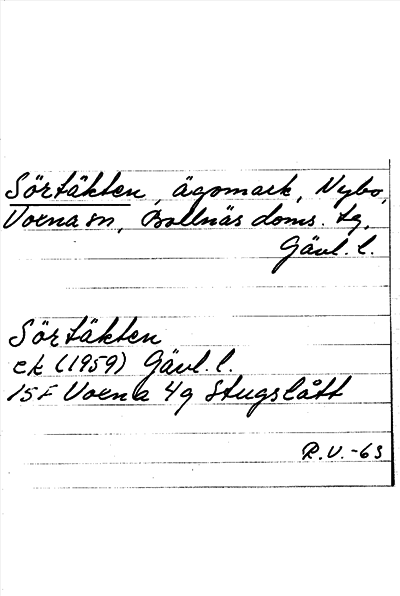 Sörtäkten, ägomark, Nybo,
Voxna sn, Bollnäs doms. tg,
Gävl. l.
Sörtäkten
ek (1959) Gävl. l.
15F Voxna 4g Stugslått
R.V.-63